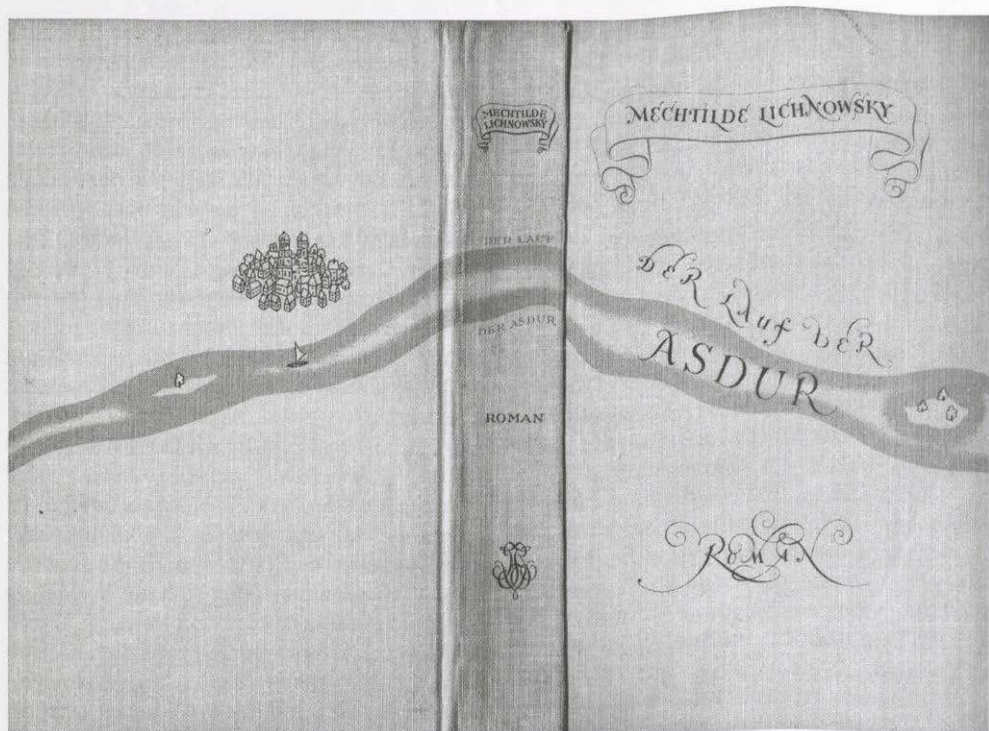 MECHTILDE
LICHNOWSKY
DER LAUF
DER ASDUR
ROMAN
MECHTILDE LICHNOWSKY
DER LAuf DER
ASDUR
ROMAN